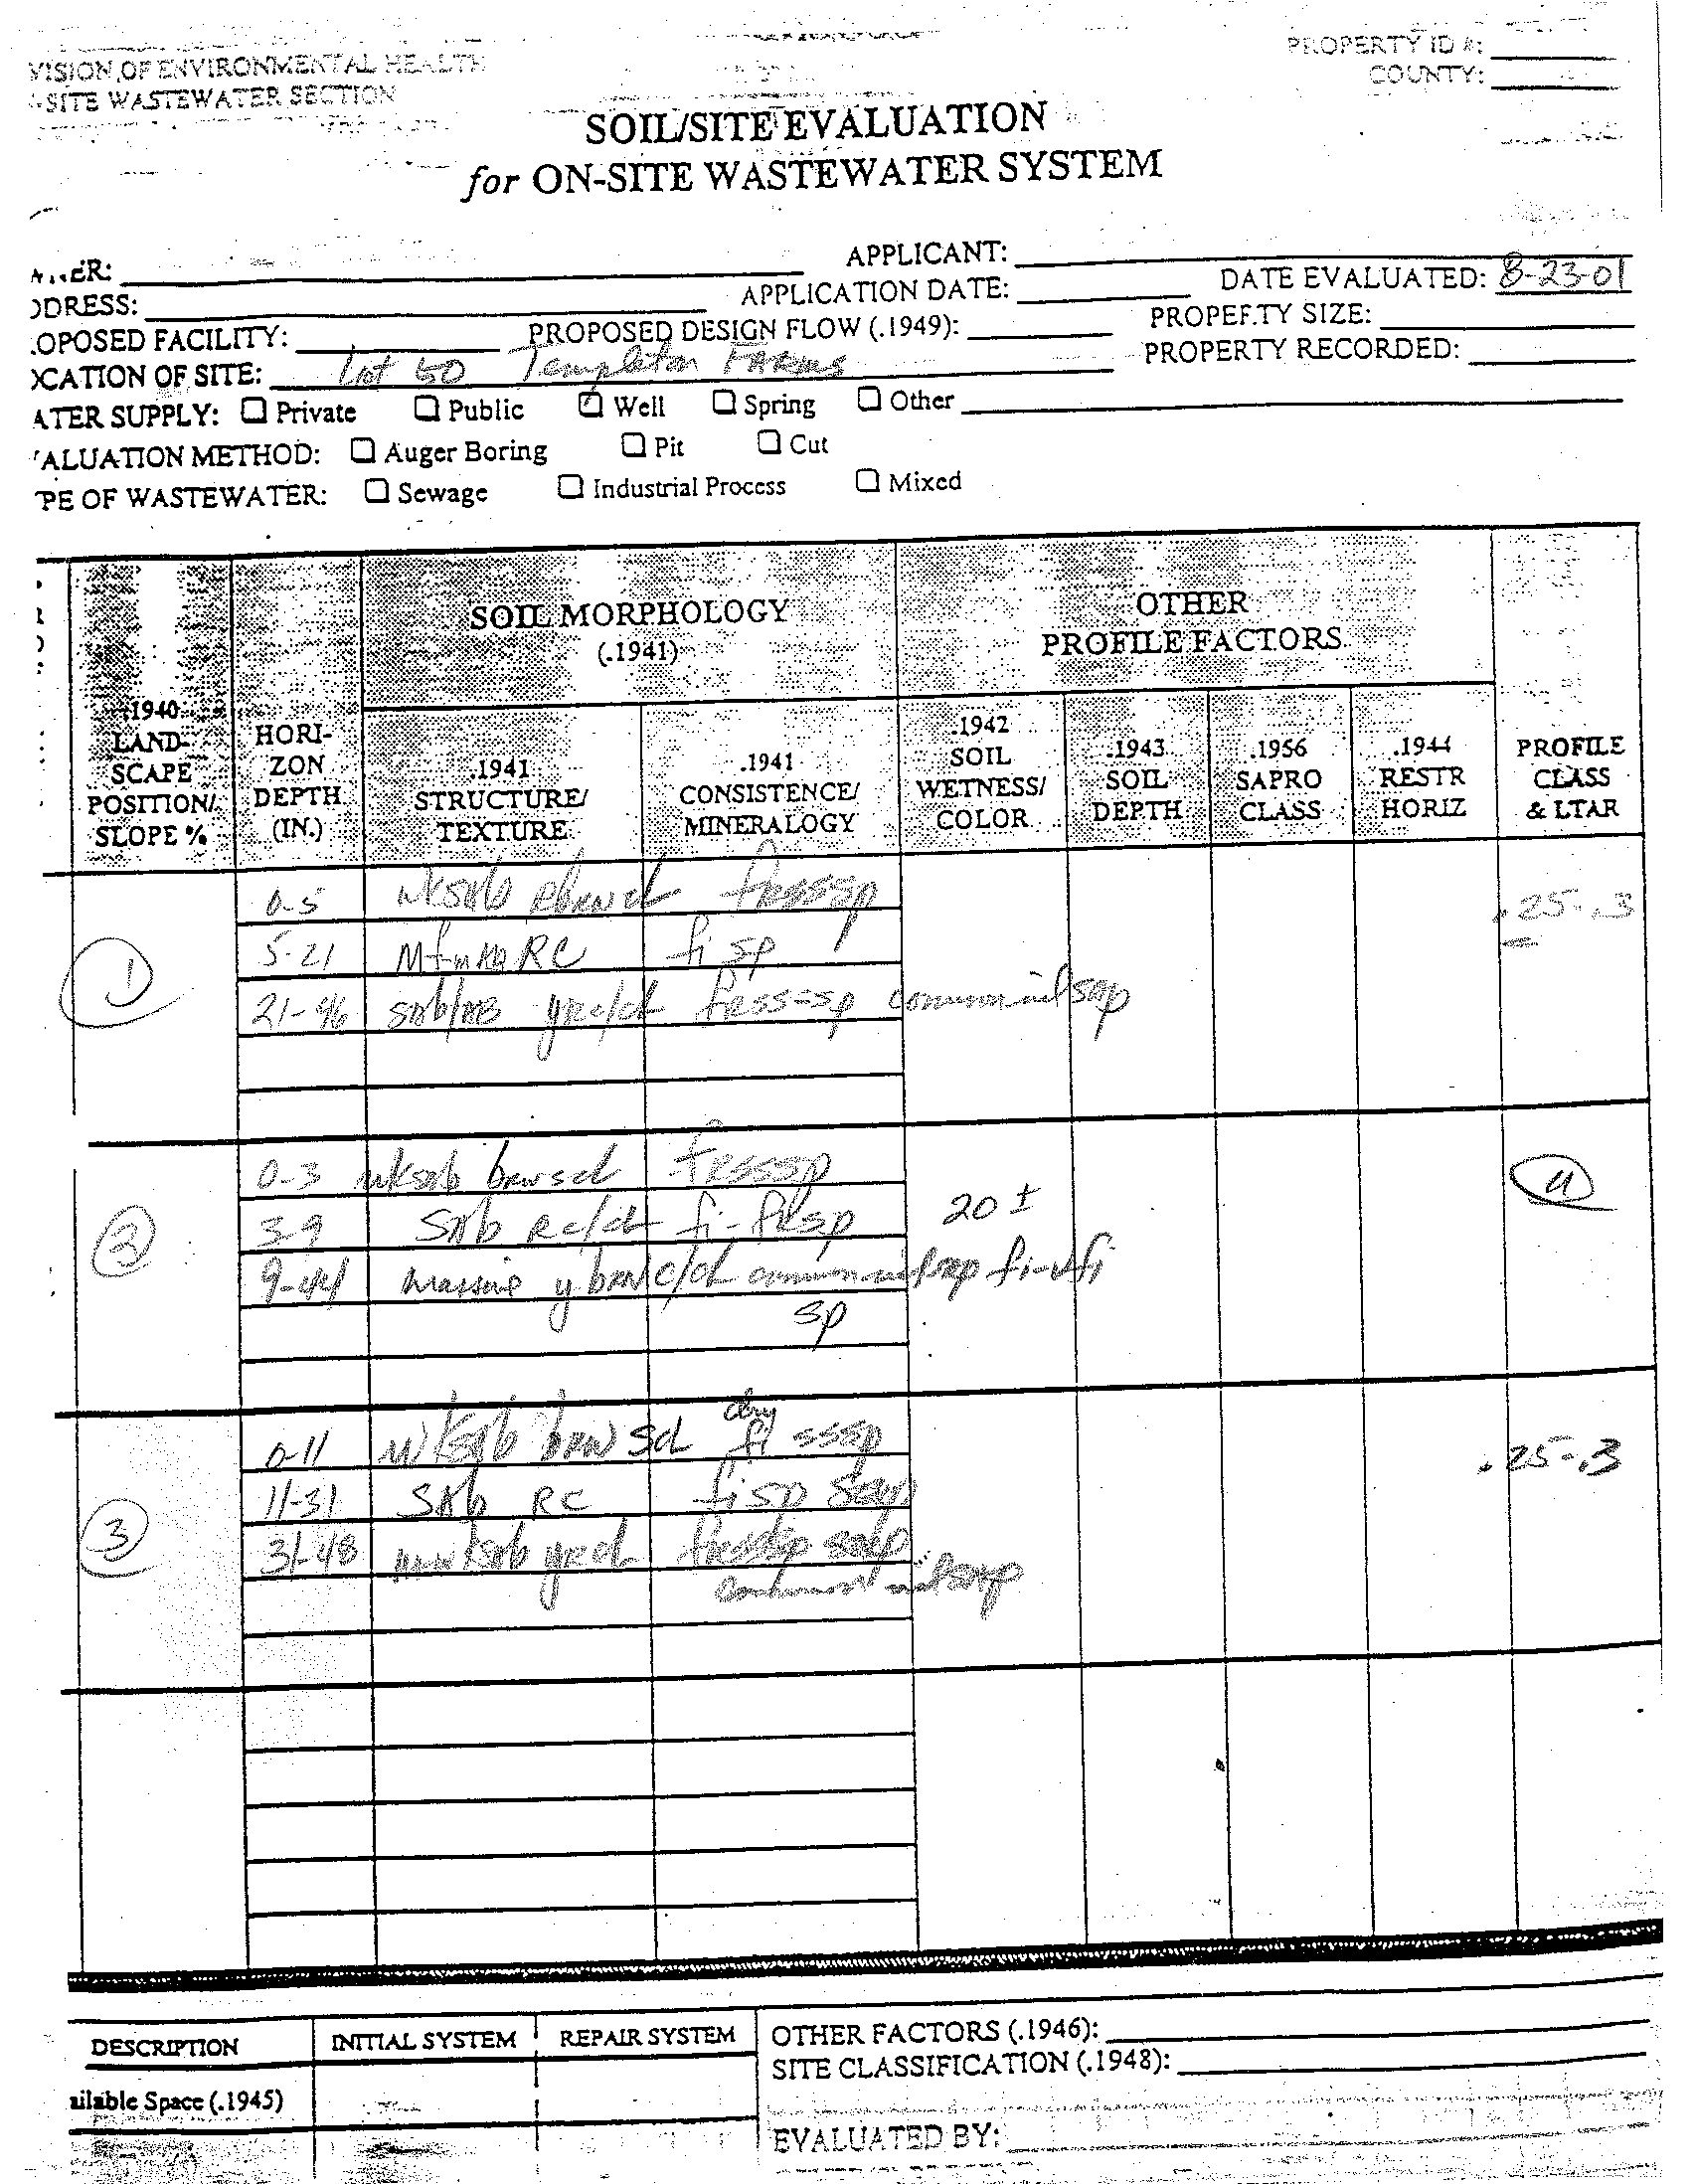 VISION OF ENVIRONMENTAL HEALTH
SITE WASTEWATER SECTION
PROPERTY ID #:
COUNTY:
SOIL/SITE EVALUATION
for ON-SITE WASTEWATER SYSTEM
APPLICANT:
DDRESS:
APPLICATION DATE:
DATE EVALUATED: 8-23-01
OPOSED FACILITY:
PROPOSED DESIGN FLOW (.1949):
PROPERTY SIZE:
OCATION OF SITE: Lot 50 Templeton FARMS
PROPERTY RECORDED:
ATER SUPPLY: Private Public Well Spring Other
ALUATION METHOD: Auger Boring Pit Cut
PE OF WASTEWATER: Sewage Industrial Process Mixed
SOIL MORPHOLOGY
(.1941)
OTHER
PROFILE FACTORS
.1940
LAND-
SCAPE
POSITION/
SLOPE %
HORI-
ZON
DEPTH
(IN.)
.1941
STRUCTURE/
TEXTURE
.1941
CONSISTENCE/
MINERALOGY
.1942
SOIL
WETNESS/
COLOR
.1943
SOIL
DEPTH
.1956
SAPRO
CLASS
.1944
RESTR
HORIZ
PROFILE
CLASS
& LTAR
1
0-5 wksbb frsssp .25-.3
5-21 RC fi sp
21-46 frss-sp common
2
0-3 wksbb brwscl frsssp
3-9 sbb rc/cl fi-frsp 20 ±
9-44 massive y brw c/cl common fi-vfi
sp
3
0-11 wksbb brw scl dry fi sssp .25-.3
11-31 Sbb RC fi sp
31-48 common
DESCRIPTION
INITIAL SYSTEM
REPAIR SYSTEM
OTHER FACTORS (.1946):
SITE CLASSIFICATION (.1948):
ailable Space (.1945)
EVALUATED BY: